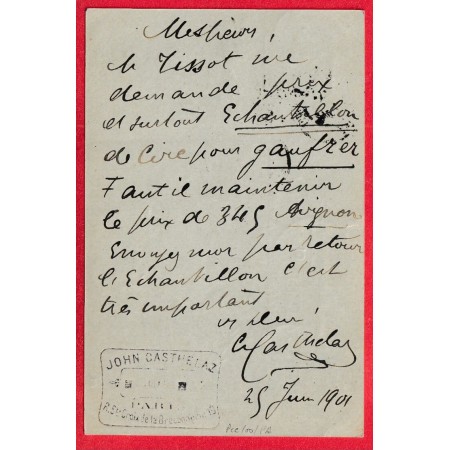 Messieurs,
M Tissot me
demande prix
et surtout Echantillon
de Cire pour gaufrer
Faut il maintenir
le prix de 345 Avignon
Envoyez moi par retour
l'Echantillon c'est
très important
Casthelaz
25 Juin 1901
JOHN CASTHELAZ
PARIS